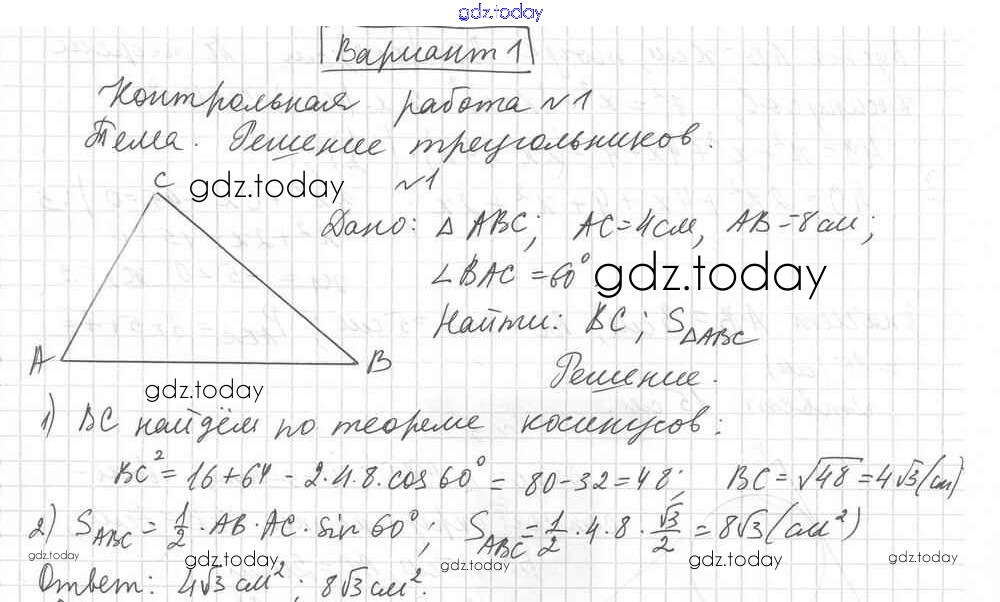 gdz.today
Вариант 1
Контрольная работа №1
Тема. Решение треугольников.
C gdz.today №1
Дано: △ABC; AC=4см, AB=8см;
∠BAC =60° gdz.today
Найти: BC; S△ABC
A B
Решение.
gdz.today
1) BC найдём по теореме косинусов:
BC²=16+64-2·4·8·cos60°=80-32=48; BC=√48=4√3(см)
2) S_ABC=1/2·AB·AC·sin60°; S_ABC=1/2·4·8·√3/2=8√3(см²)
gdz.today gdz.today gdz.today gdz.today
Ответ: 4√3см²; 8√3см².